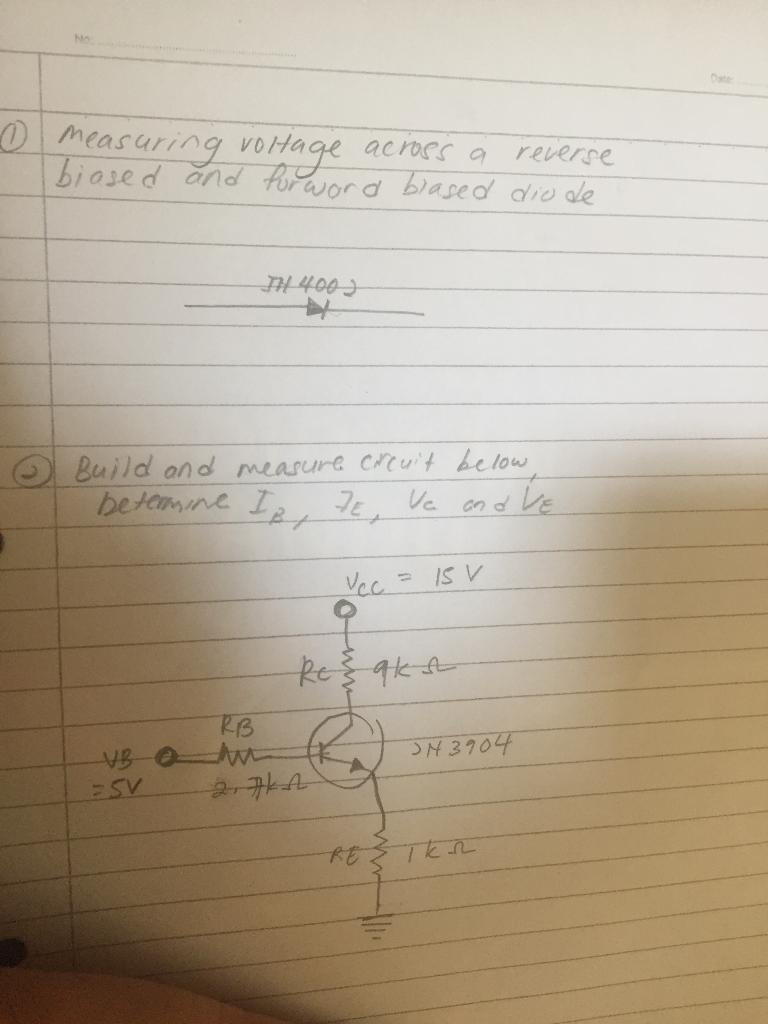 No:
Date:
① Measuring voltage across a reverse
biased and forword biased diode
IN4002
② Build and measure circuit below,
Determine IB, IE, VC and VE
VCC = 15 V
RC 9k Ω
RB
VB
= 5V
2.7k Ω
2N3904
RE 1k Ω